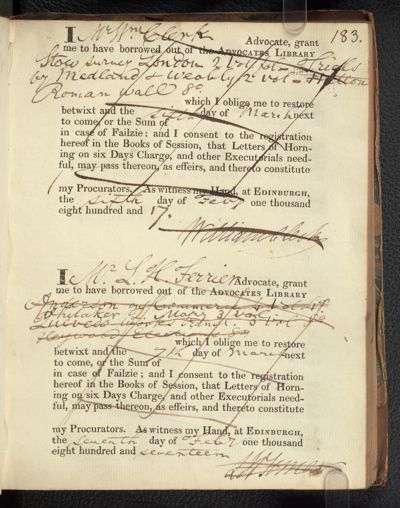 183.
I Mr Wm Clerk Advocate, grant
me to have borrowed out of the ADVOCATES LIBRARY
Stow Survey London 2 vol fol – Trials
by Medland & Weobly 2d vol – Hutton
Roman Wall 8o
which I oblige me to restore
betwixt and the sixth day of March next
to come, or the Sum of
in case of Failzie; and I consent to the registration
hereof in the Books of Session, that Letters of Horn-
ing on six Days Charge, and other Executorials need-
ful, may pass thereon, as effeirs, and thereto constitute
my Procurators. As witness my Hand, at EDINBURGH,
the sixth day of Feby one thousand
eight hundred and 17.
William Clerk
I Mr L H Ferrier Advocate, grant
me to have borrowed out of the ADVOCATES LIBRARY
Anderson on Commerce 4 vol
Whitaker Q. Mary 3 vol 8o
Quevedo Works 3 vol 8o
which I oblige me to restore
betwixt and the 7th day of March next
to come, or the Sum of
in case of Failzie; and I consent to the registration
hereof in the Books of Session, that Letters of Horn-
ing on six Days Charge, and other Executorials need-
ful, may pass thereon, as effeirs, and thereto constitute
my Procurators. As witness my Hand, at EDINBURGH,
the Seventh day of Feby one thousand
eight hundred and seventeen